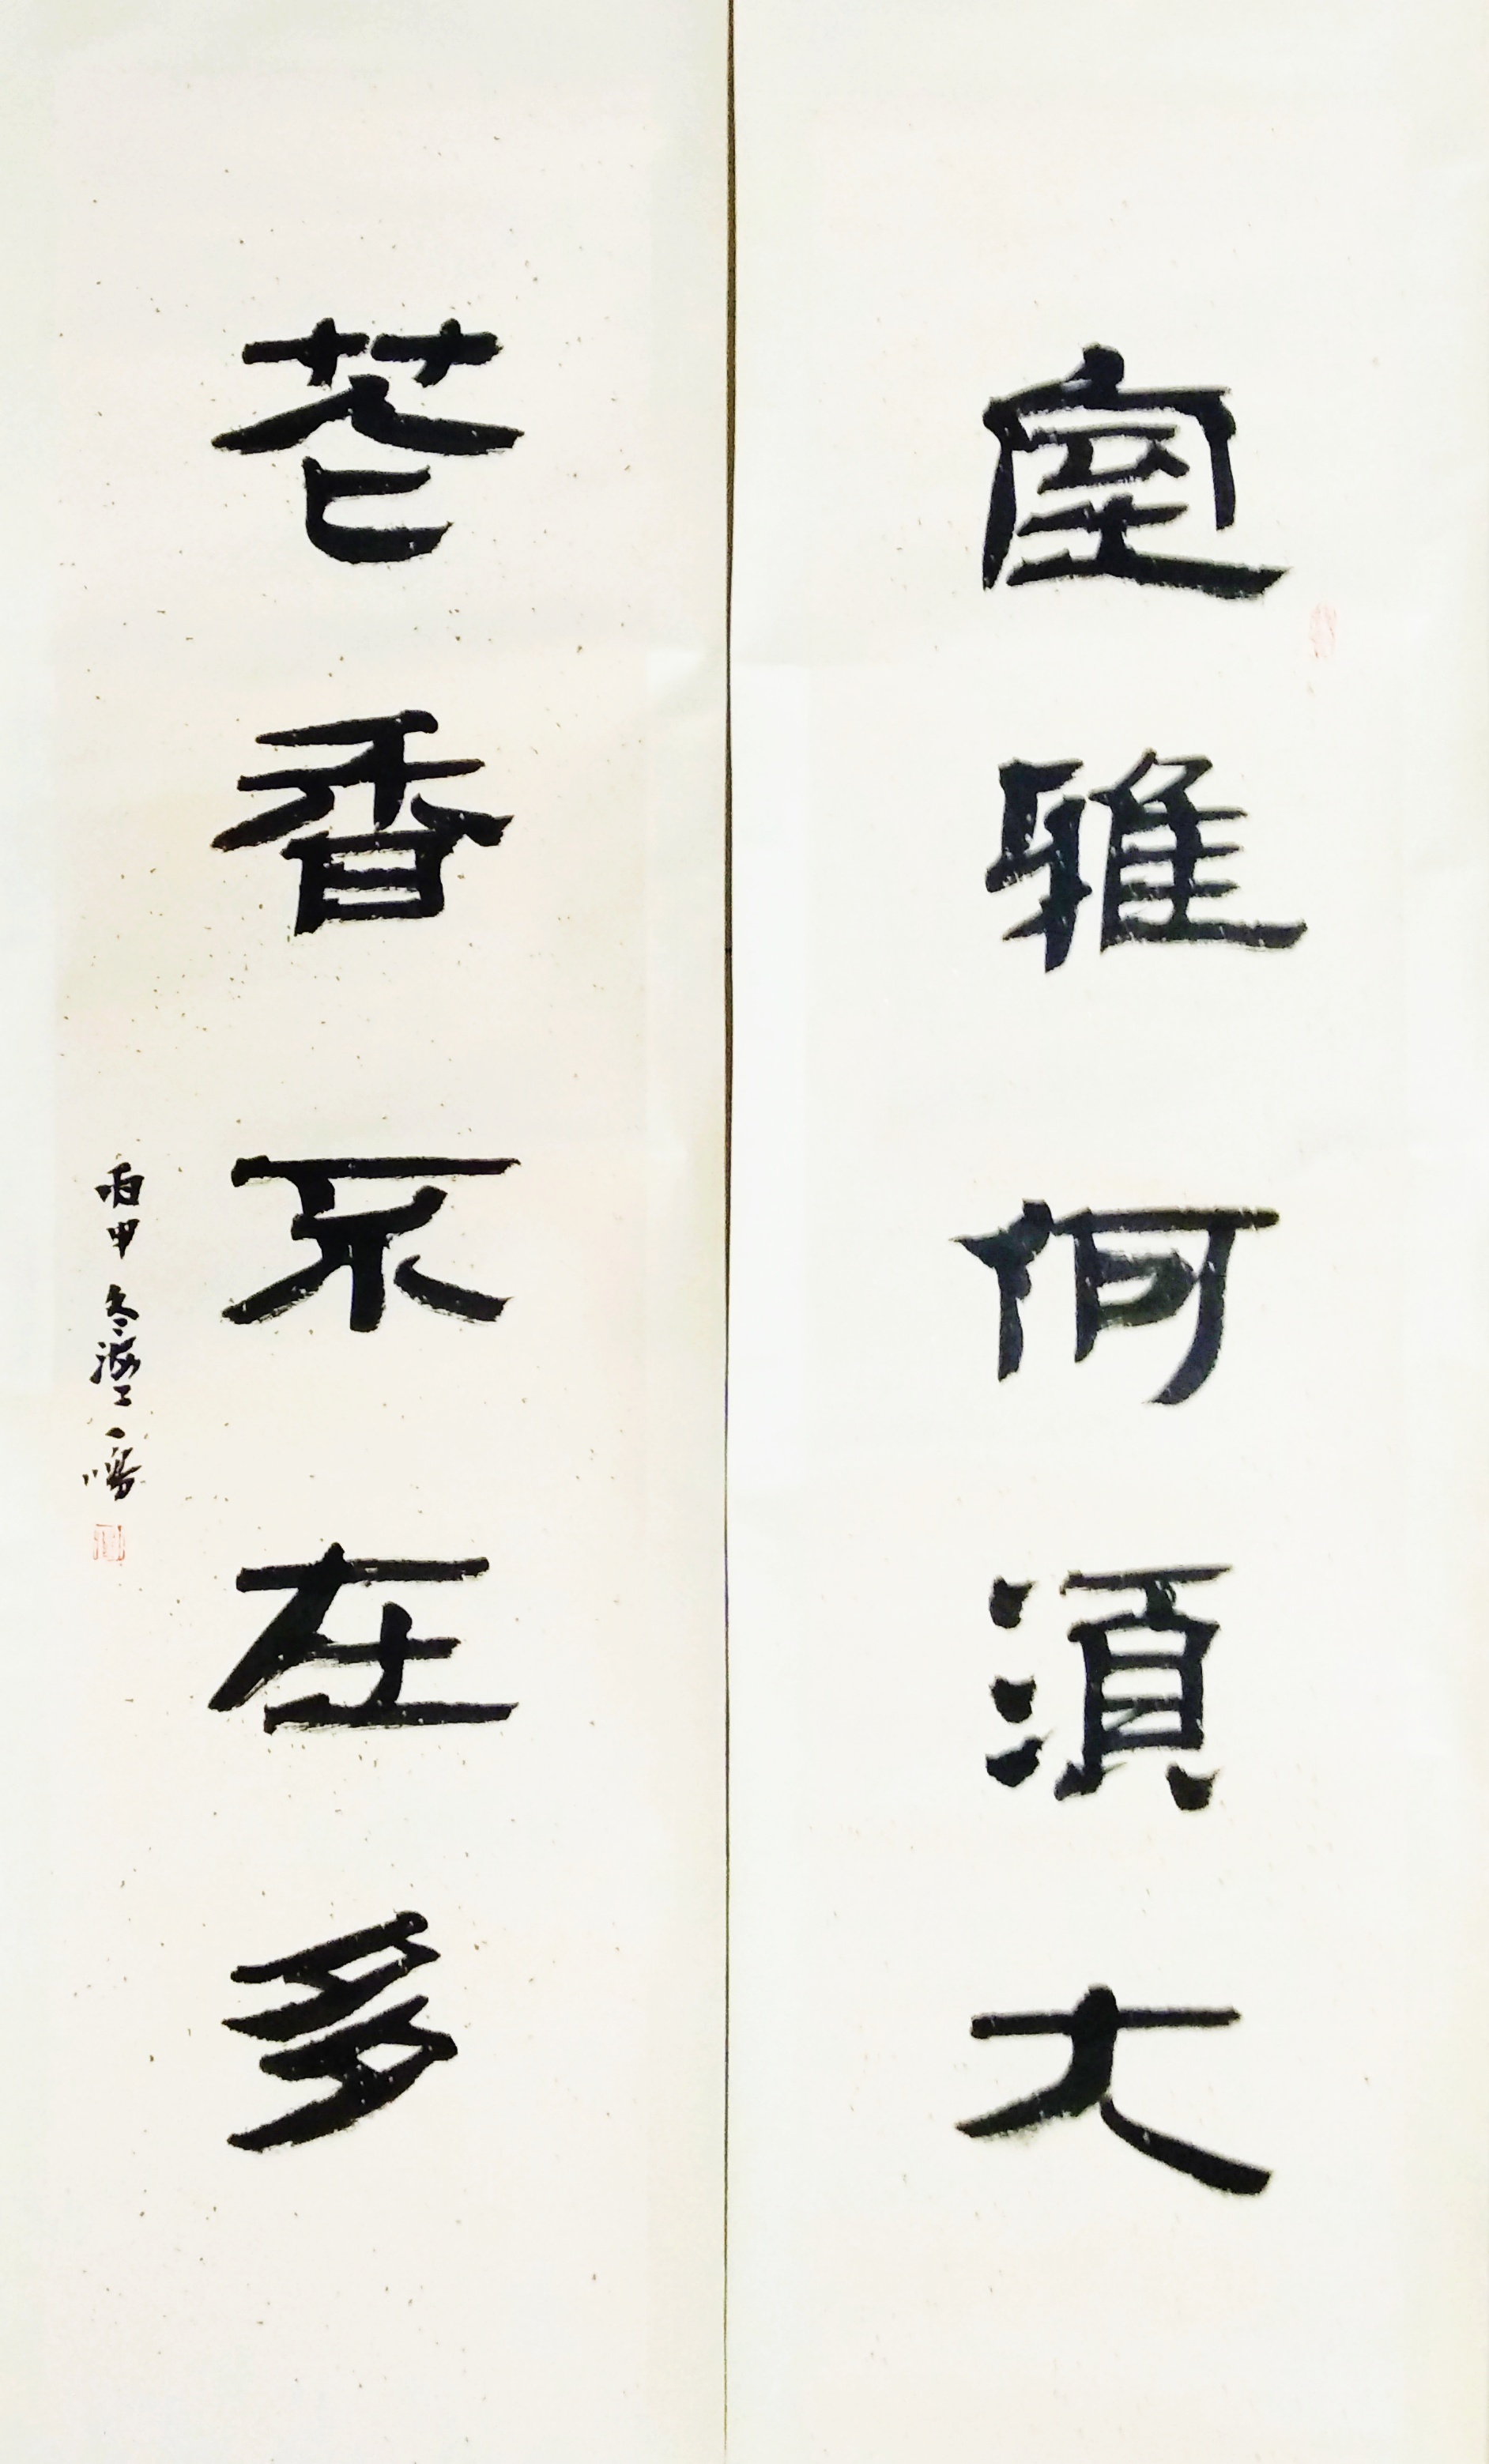 室雅何須大
花香不在多
丙申冬海上一鳴